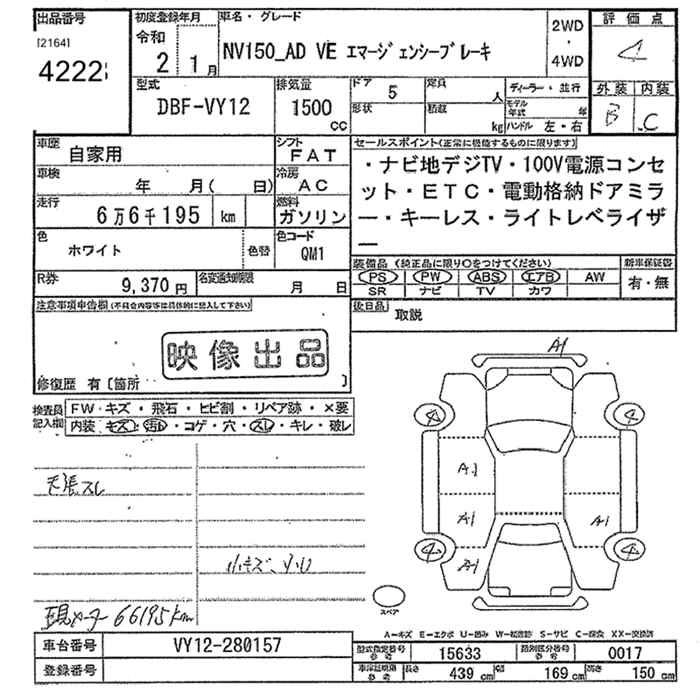 出品番号 初度登録年月 車名・グレード 2WD ・ 4WD 評価点
[2164] 令和 2 1月 NV150_AD VE エマージェンシーブレーキ 4
4222 型式 排気量 ドア 5 定員 人 ディーラー・並行 外装 内装
DBF-VY12 1500 CC 形状 積載 kg モデル年式 年 ハンドル 左・右 B C
車歴 自家用 シフト FAT セールスポイント(正常に機能するものに限ります)
車検 年 月( 日) 冷房 AC ・ナビ地デジTV・100V電源コンセ
走行 6万6千195 km 燃料 ガソリン ット・ETC・電動格納ドアミラ
ー・キーレス・ライトレベライザ
色 ホワイト 色替 色コード QM1 ー
装備品 (純正品に限り○をつけてください) 新車保証書
R券 9,370円 名変通知期限 月 日 PS PW ABS エアB AW 有・無
SR ナビ TV カワ
注意事項申告欄(不具合内容等は具体的に記入して下さい) 後日品 取説
映像出品
修復歴 有 〔箇所 〕
検査員記入欄 FW・キズ・飛石・ヒビ割・リペア跡・×要
内装・キズ・汚れ・コゲ・穴・スレ・キレ・破レ
A1
4 4
天張スレ A1
A1 A1
小キズ、
4 4
A1
現メーター 66195km スペア
A-キズ E-エクボ U-凹み W-板金跡 S-サビ C-腐食 XX-交換済
車台番号 VY12-280157 型式指定番号 参考 15633 類別区分番号 参考 0017
登録番号 車両証明欄 参考 長さ 439 cm 幅 169 cm 高さ 150 cm